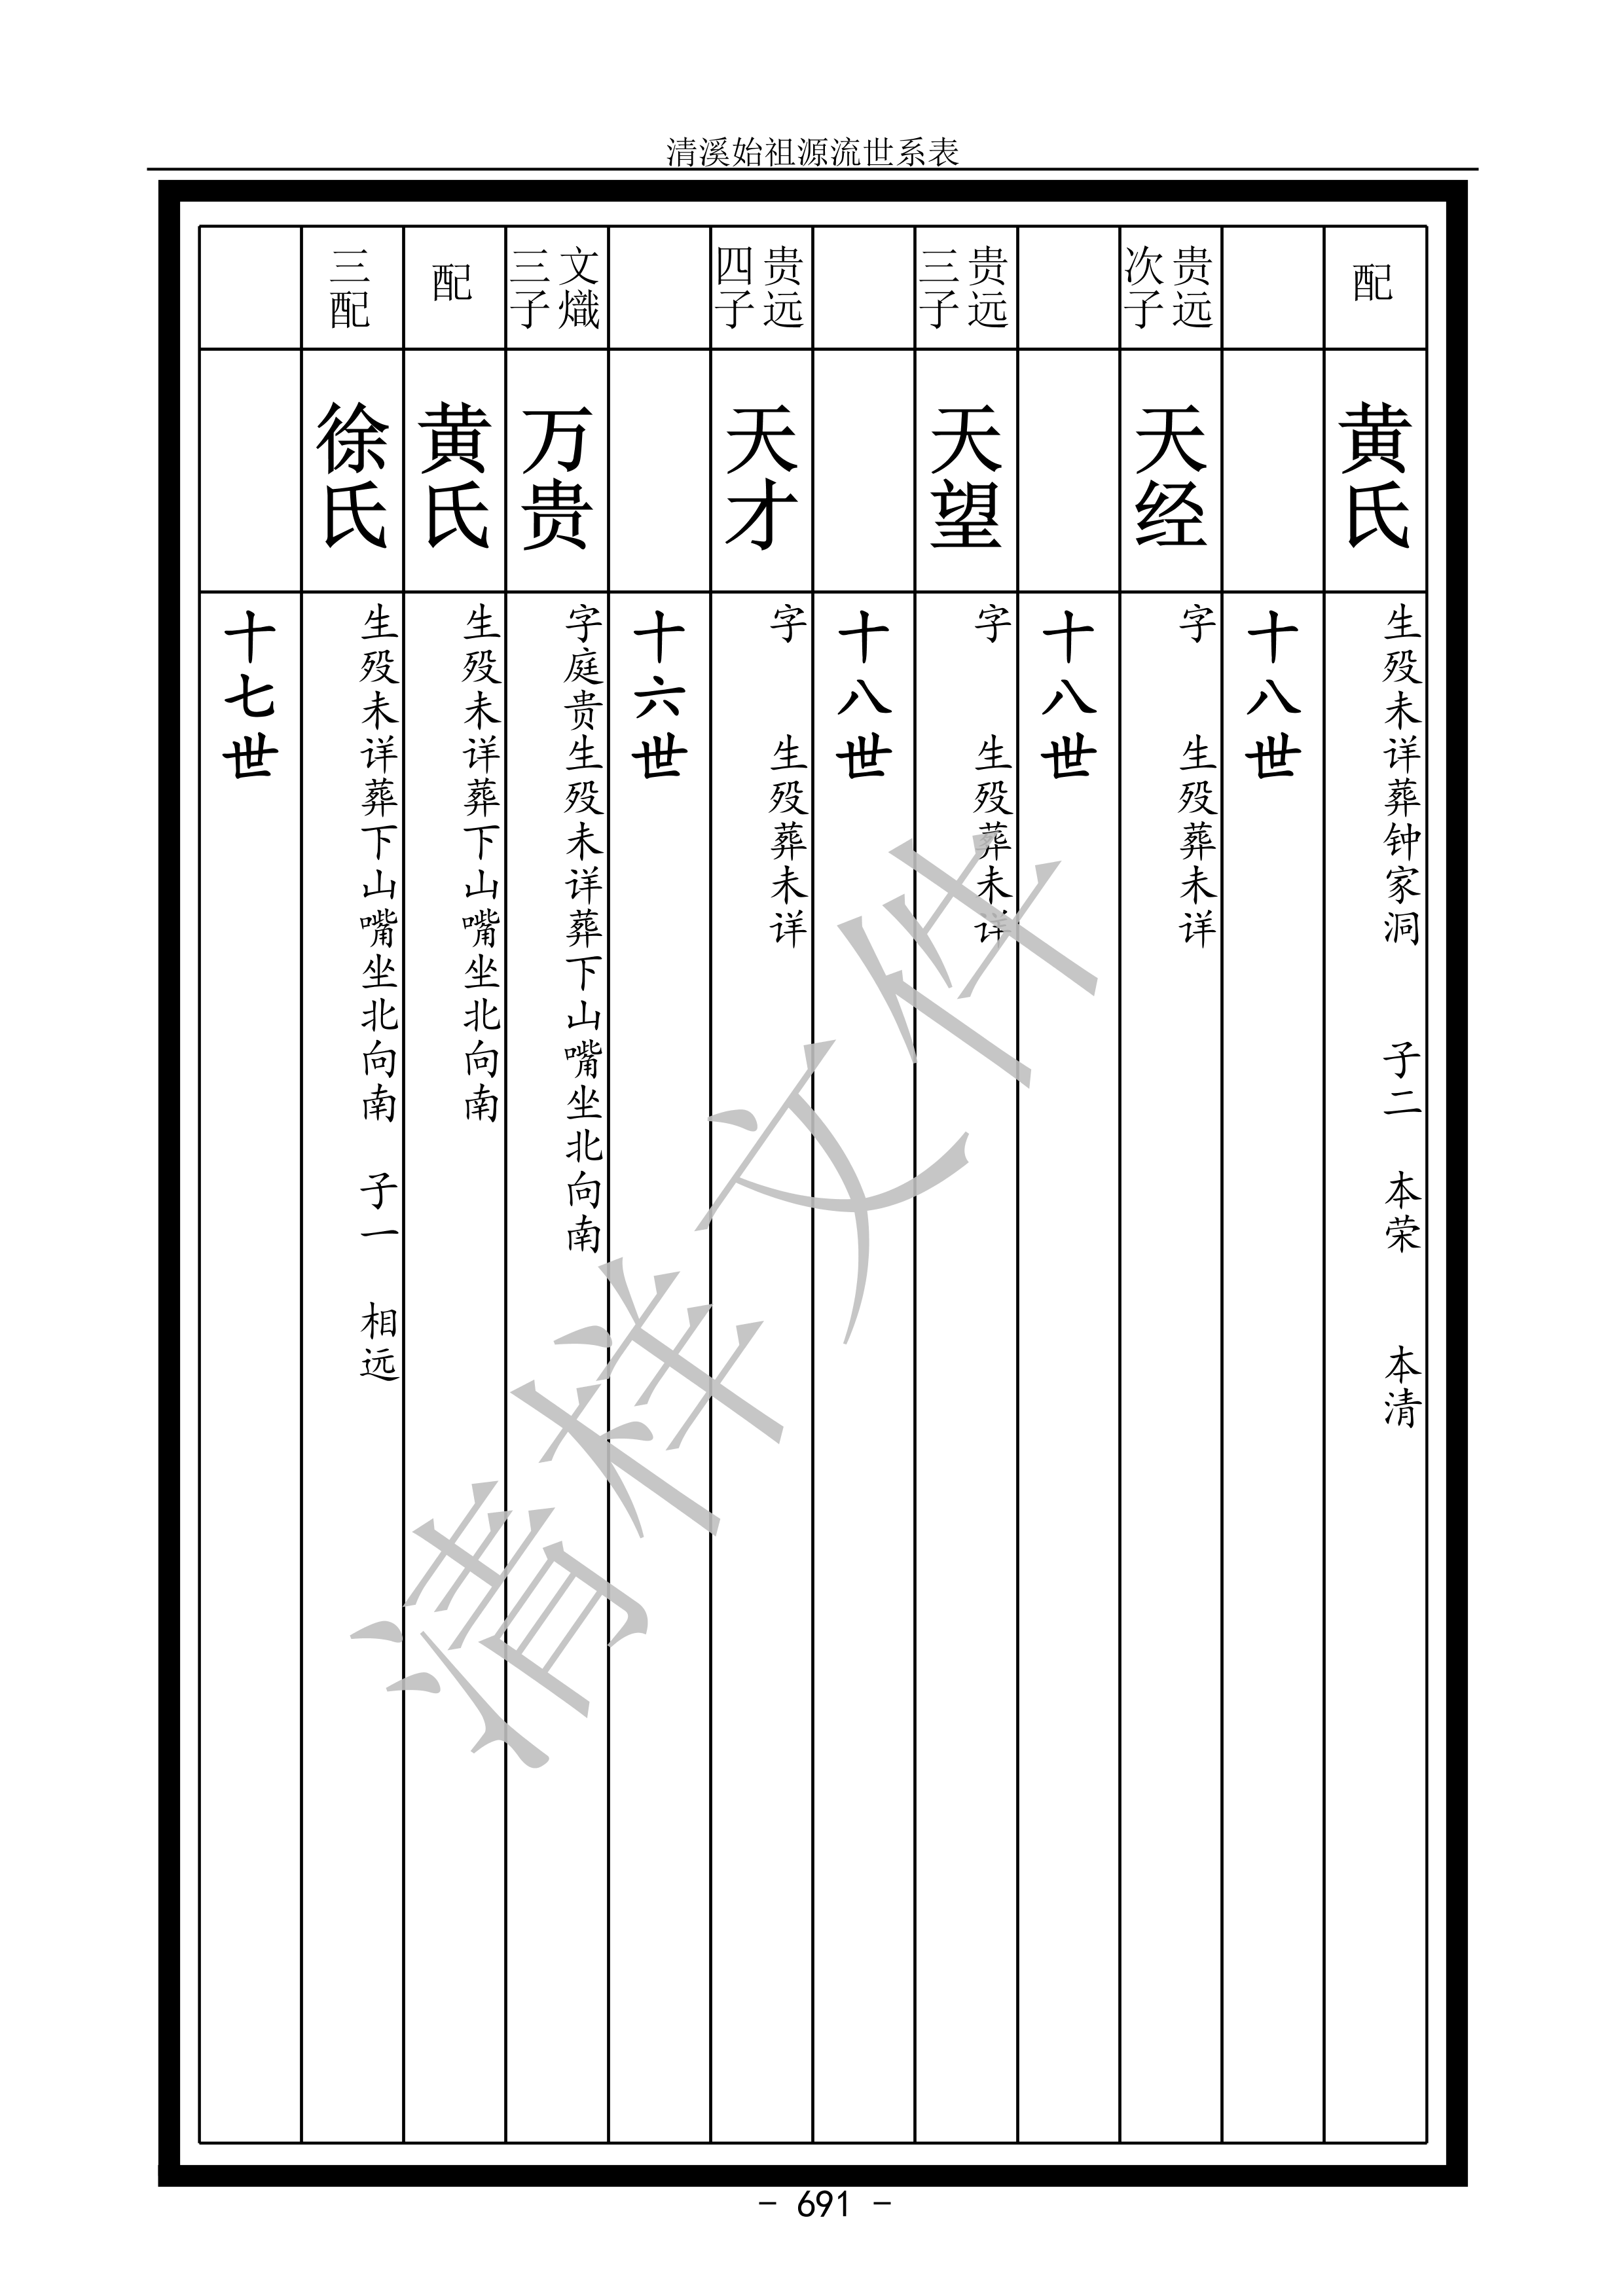 清溪始祖源流世系表
配
黄氏
生殁未详葬钟家洞 子二 本荣 本清
十八世
贵远
次子
天经
字 生殁葬未详
十八世
贵远
三子
天望
字 生殁葬未详
十八世
贵远
四子
天才
字 生殁葬未详
十六世
文熾
三子
万贵
字庭贵生殁未详葬下山嘴坐北向南
配
黄氏
生殁未详葬下山嘴坐北向南
三配
徐氏
生殁未详葬下山嘴坐北向南 子一 相远
十七世
清样文件
- 691 -